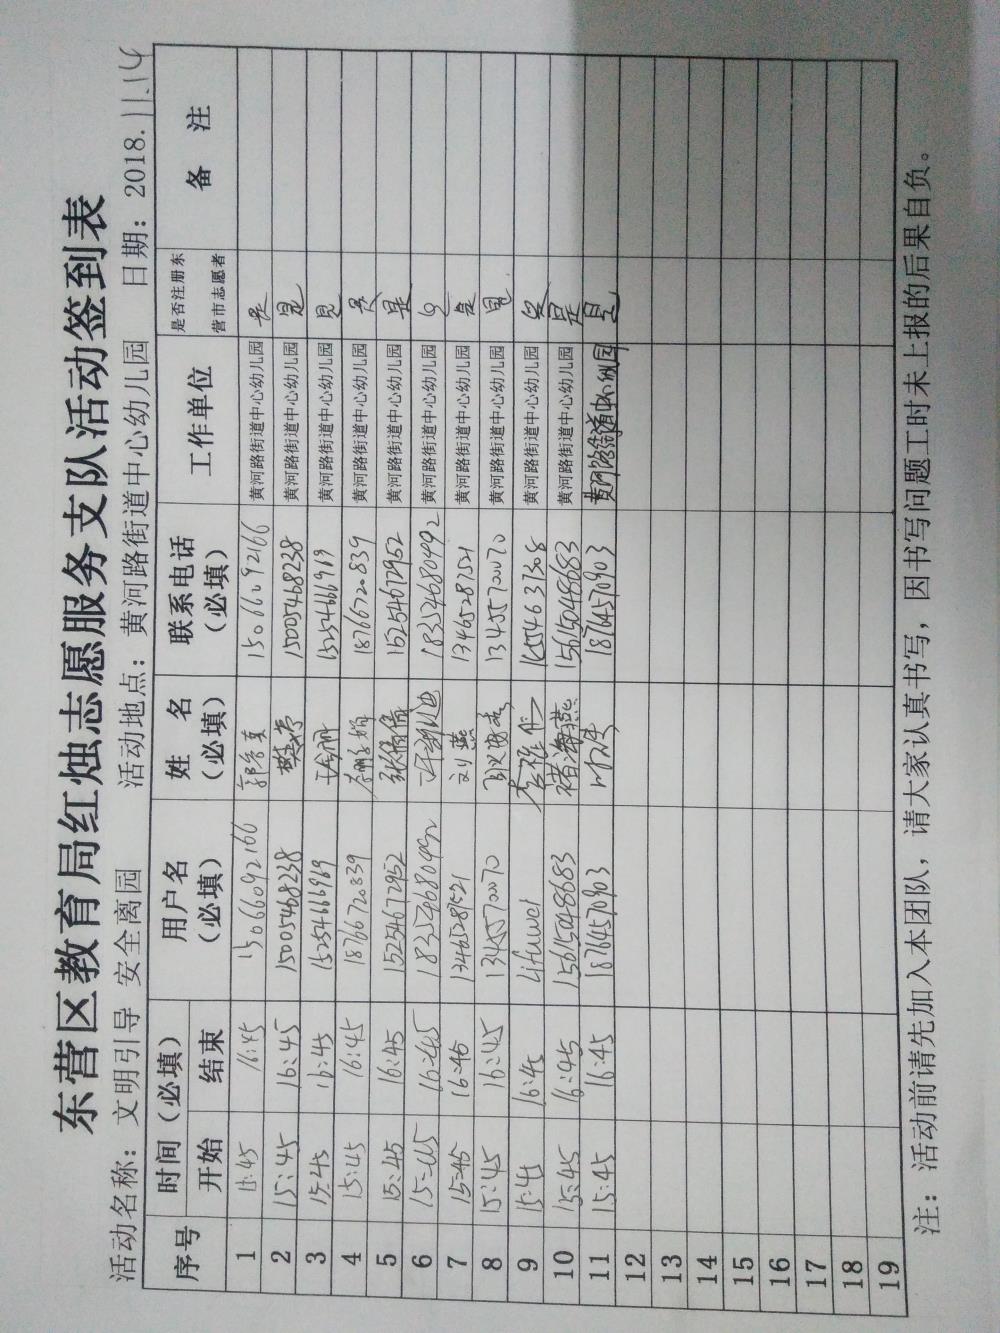 东营区教育局红烛志愿服务支队活动签到表
活动名称：文明引导 安全离园 活动地点：黄河路街道中心幼儿园 日期：2018.11.14
序号 时间（必填） 用户名（必填） 姓 名（必填） 联系电话（必填） 工作单位 是否注册东营市志愿者 备 注
开始 结束
1 15:45 16:45 15066092166 15066092166 黄河路街道中心幼儿园 是
2 15:45 16:45 15005468238 15005468238 黄河路街道中心幼儿园 是
3 15:45 16:45 15254666969 15254666969 黄河路街道中心幼儿园 是
4 15:45 16:45 18766720839 18766720839 黄河路街道中心幼儿园 是
5 15:45 16:45 15254672952 张倩倩 15254672952 黄河路街道中心幼儿园 是
6 15:45 16:45 18354680992 18354680992 黄河路街道中心幼儿园 是
7 15:45 16:45 13465287521 刘燕 13465287521 黄河路街道中心幼儿园 是
8 15:45 16:45 13455700070 13455700070 黄河路街道中心幼儿园 是
9 15:45 16:45 黄河路街道中心幼儿园 是
10 15:45 16:45 15615048683 褚海燕 15615048683 黄河路街道中心幼儿园 是
11 15:45 16:45 18764570903 18764570903 黄河路街道中心幼儿园 是
12
13
14
15
16
17
18
19
注：活动前请先加入本团队，请大家认真书写，因书写问题工时未上报的后果自负。